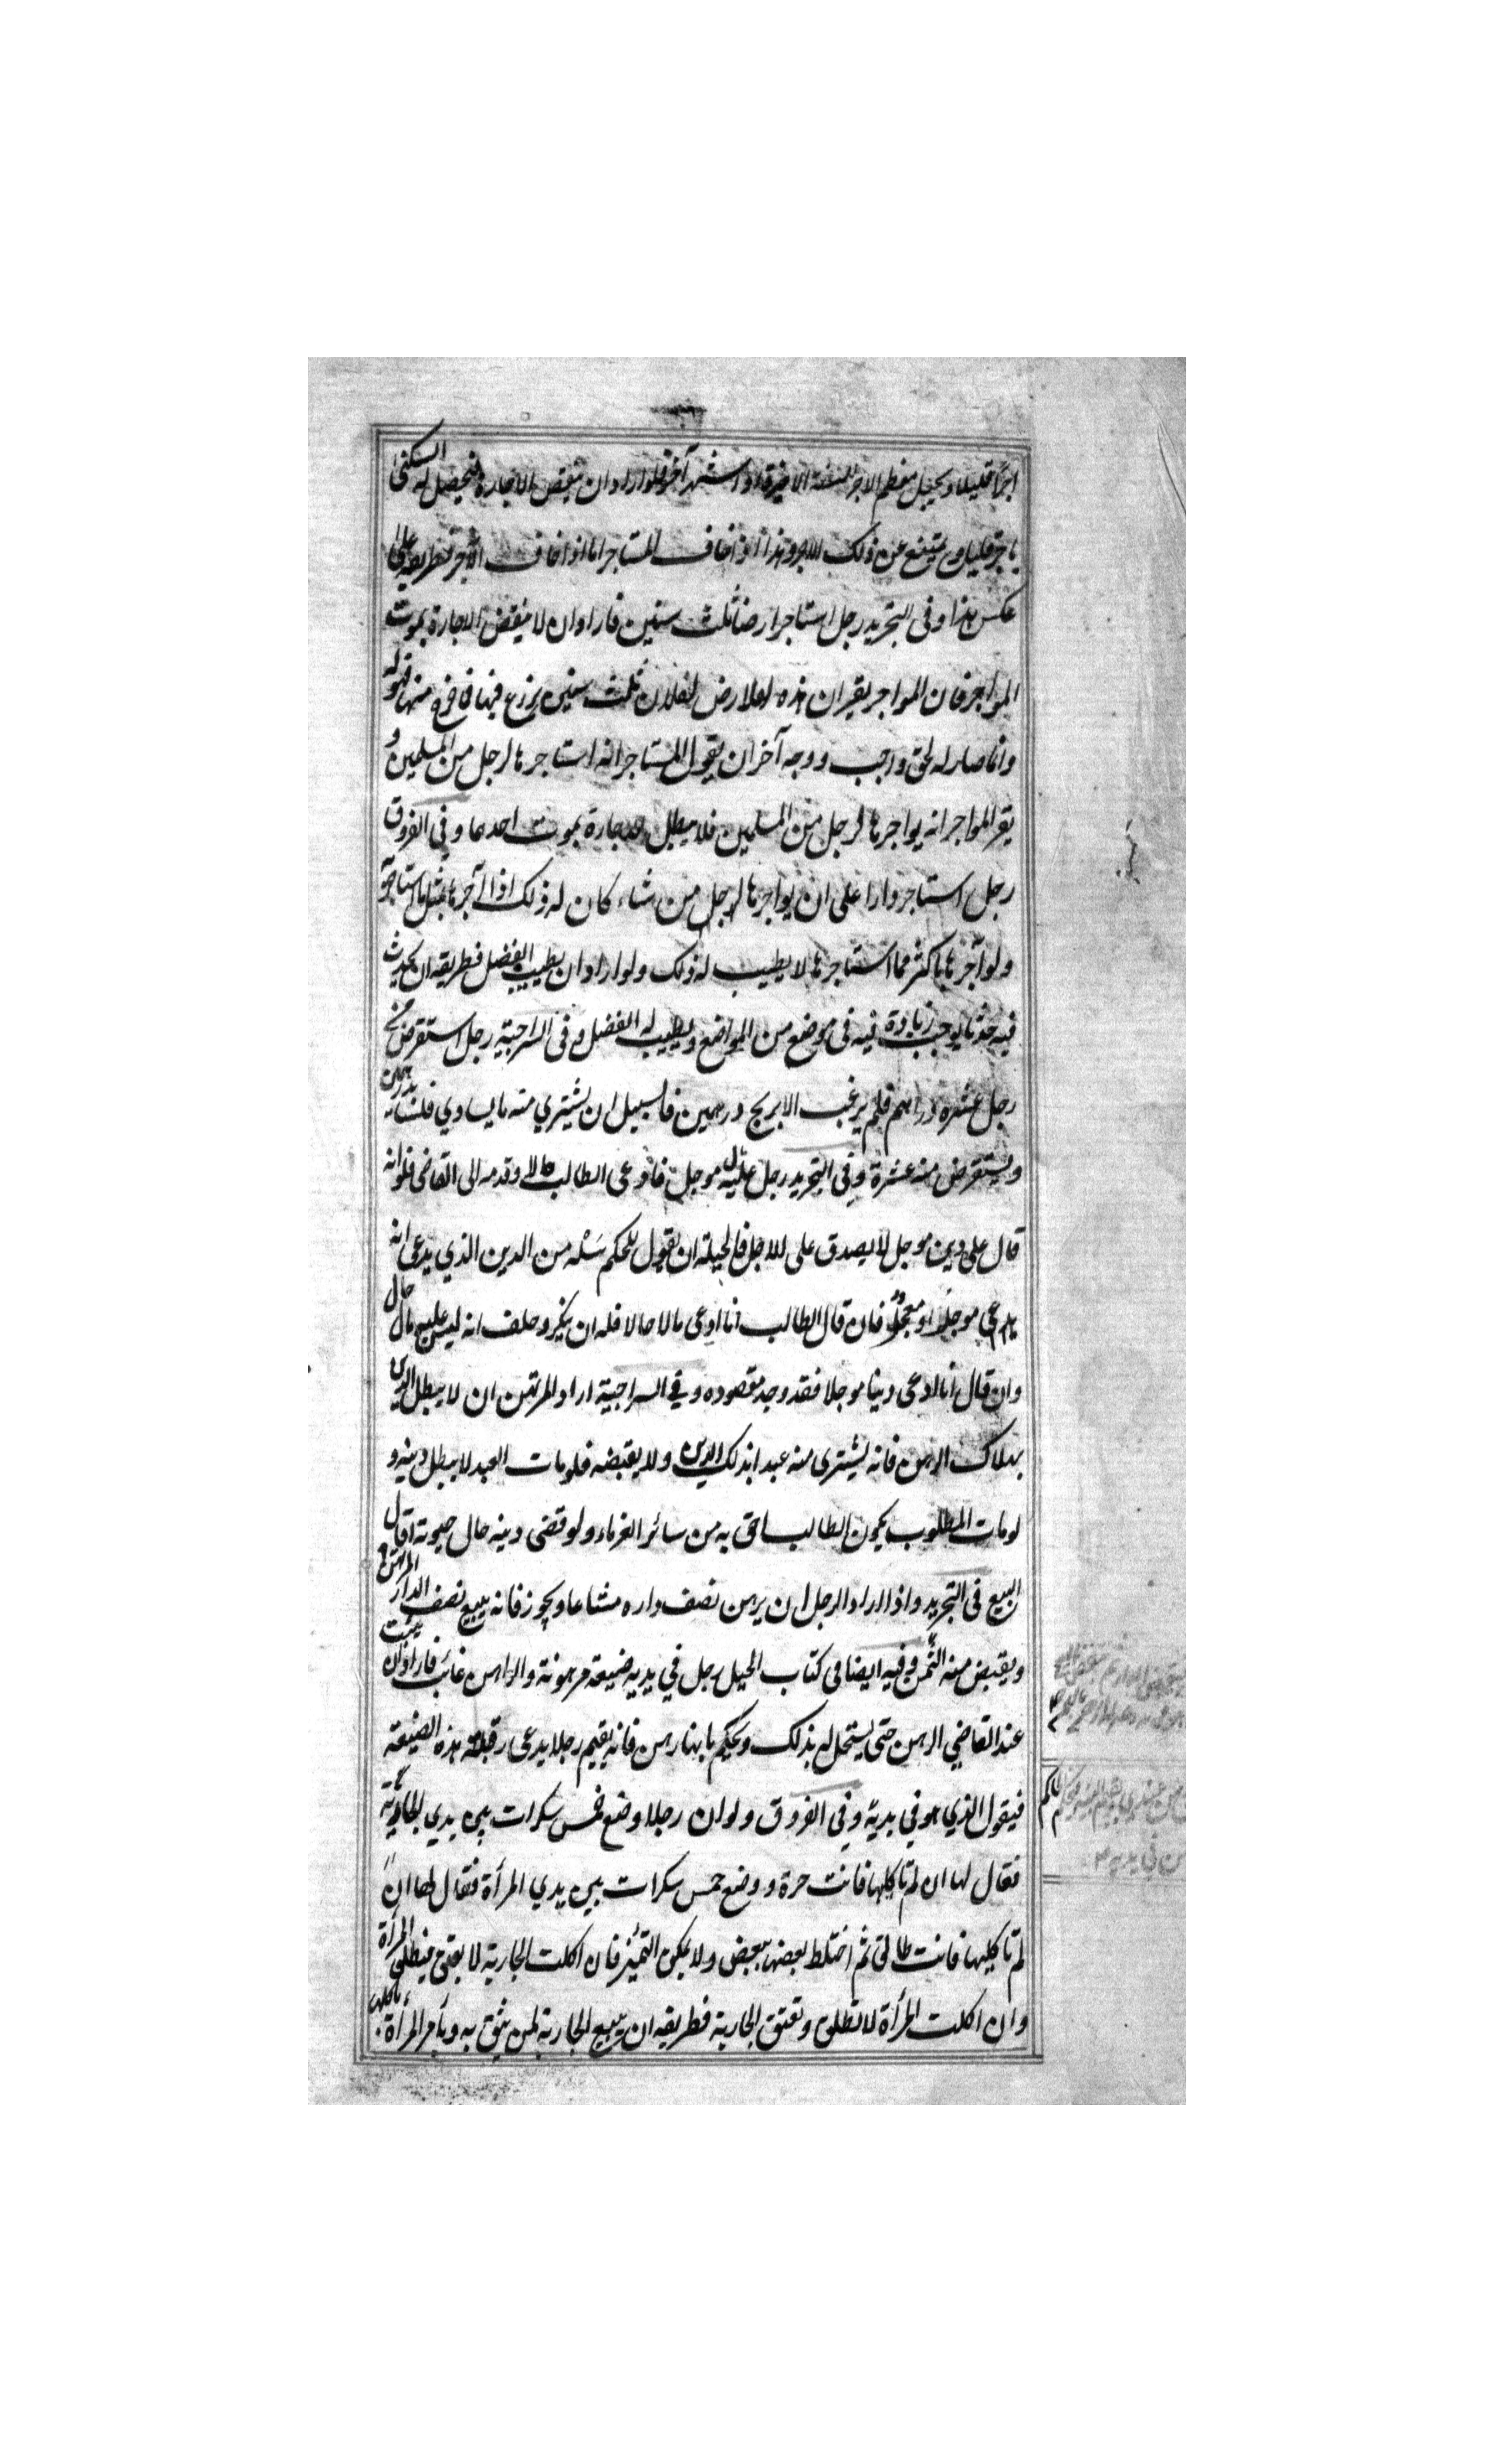 اجرا قليلا ويجعل معظم الاجر للسنة الاخيرة او شهر آخر فلو اراد ان ينقض الاجارة فيحصل له السكنى
باجر قليل ويمتنع عن ذلك الاجر وهذا اذا خاف المستاجر اما اذا خاف الآجر فطريقه على
عكس هذا وفى التجريد رجل استاجر ارضا ثلث سنين فاراد ان لا ينقض الاجارة بموت
المواجر فان المواجر يقر ان هذه الارض لفلان ثلث سنين يزرع فيها فما خرج منها فهو له
وانما صار له بحق واجب ووجه آخر ان يقول المستاجر انه استاجرها لرجل من المسلمين و
يقر المواجر انه يواجرها لرجل من المسلمين فلا يبطل الاجارة بموت احدهما وفى الفروق
رجل استاجر دارا على ان يواجرها لرجل من شاء كان له ذلك اذا آجرها بمثل ما استاجر
ولو آجرها باكثر مما استاجرها لا يطيب له ذلك ولو اراد ان يطيب الفضل فطريقه ان يحدث
فيه حدثا يوجب زيادة فيه فى موضع من المواضع ويطيب له الفضل وفى السراجية رجل استقرض من
رجل عشرة دراهم فلم يرغب الا بربح درهمين فالسبيل ان يشترى منه ما يساوي فلسا بدرهمين
ويستقرض منه عشرة وفى التجريد رجل عليه مال موجل فادعى الطالب حالا وقدمه الى القاضى فلو انه
قال على دين موجل لا يصدق على الاجل فالحيلة ان يقول للحكم سله من الدين الذي يدعى انه
يدعى موجلا او معجلا فان قال الطالب انا ادعى مالا حالا فله ان ينكر وحلف انه ليس عليه مال حال
وان قال انا ادعى دينا موجلا فقد وجد مقصوده وفى السراجية اراد المرتهن ان لا يبطل الدين
بهلاك الرهن فانه يشترى منه عبدا بذلك الدين ولا يقبضه فلو مات العبد لا يبطل دينه و
لو مات المطلوب يكون الطالب احق به من سائر الغرماء ولو قضى دينه حال حيوته اقال
البيع فى التجريد واذا اراد الرجل ان يرهن نصف داره مشاعا ويجوز فانه يبيع نصف الدار المرتهن
ويقبض منه الثمن وفيه ايضا فى كتاب الحيل رجل في يديه ضيعة مرهونة والراهن غائب فاراد ان يثبت
عند القاضي الرهن حتى يستحل له بذلك ويحكم بانها رهن فانه يقيم رجلا يدعى رقبة هذه الضيعة
فيقول الذي هو في يديه وفي الفروق ولو ان رجلا وضع خمس سكرات بين يدي الجارية
فقال لها ان لم تاكليها فانت حرة ووضع خمس سكرات بين يدي المرأة فقال لها ان
لم تاكليها فانت طالق ثم اختلط بعضها ببعض ولا يمكن التميز فان اكلت الجارية لا يعتق فيطلق المرأة
وان اكلت المرأة لا تطلق وتعتق الجارية فطريقه ان يبيع الجارية لمن يثق به ويأمر المرأة باكلها